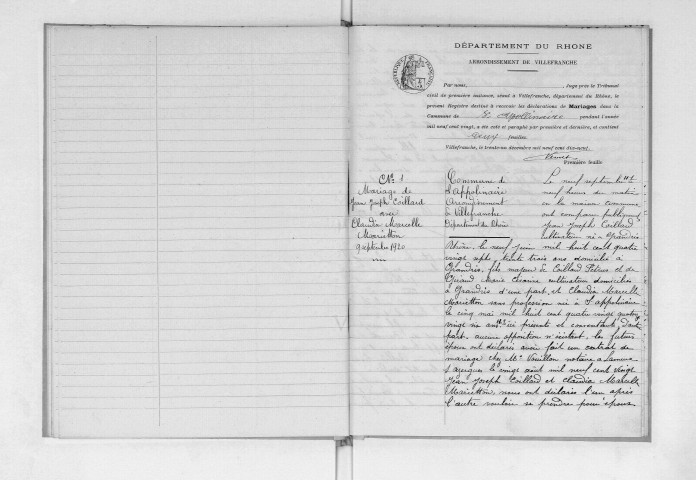 DÉPARTEMENT DU RHONE
ARRONDISSEMENT DE VILLEFRANCHE
Par nous, , Juge près le Tribunal
civil de première instance, séant à Villefranche, département du Rhône, le
présent Registre destiné à recevoir les déclarations de Mariages dans la
Commune de St Apollinaire pendant l'année
mil neuf cent vingt, a été coté et paraphé par première et dernière, et contient
deux feuilles
Villefranche, le trente-un décembre mil neuf cent dix-neuf.
Première feuille
No 1
Mariage de
Jean Joseph Coillard
avec
Claudia Marcelle
Marietton
9 septembre 1920
Commune de
St Appolinaire
Arrondissement
de Villefranche
Département du Rhône
Le neuf septembre
neuf heures du matin
en la maison commune
ont comparu publiquement
Jean Joseph Coillard
cultivateur né à Grandris
Rhône, le neuf juin mil huit cent quatre
vingt sept, trente trois ans domicilié à
Grandris, fils majeur de Coillard Petrus et de
Giraud Marie cultivateurs domiciliés
à Grandris d'une part, et Claudia Marcelle
Marietton sans profession née à St appolinaire
le cinq mai mil huit cent quatre vingt quatorze
vingt six ans ici présents et consentants, d'autre
part. aucune opposition n'existant. les futurs
époux ont déclaré avoir fait un contrat de
mariage chez Me Vouillon notaire à Lamure
s/ azergues le vingt août mil neuf cent vingt
Jean Joseph Coillard et Claudia Marcelle
Marietton, nous ont déclaré l'un après
l'autre vouloir se prendre pour époux